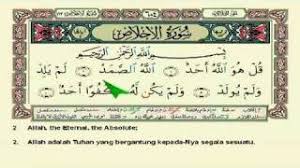 ٦٠٤
سُورَةُ الْإِخْلَاصِ
بِسْمِ اللَّهِ الرَّحْمَٰنِ الرَّحِيمِ
قُلْ هُوَ اللَّهُ أَحَدٌ اللَّهُ الصَّمَدُ لَمْ يَلِدْ
وَلَمْ يُولَدْ وَلَمْ يَكُن لَّهُ كُفُوًا أَحَدٌ
2 Allah, the Eternal, the Absolute;
2. Allah adalah Tuhan yang bergantung kepada-Nya segala sesuatu.